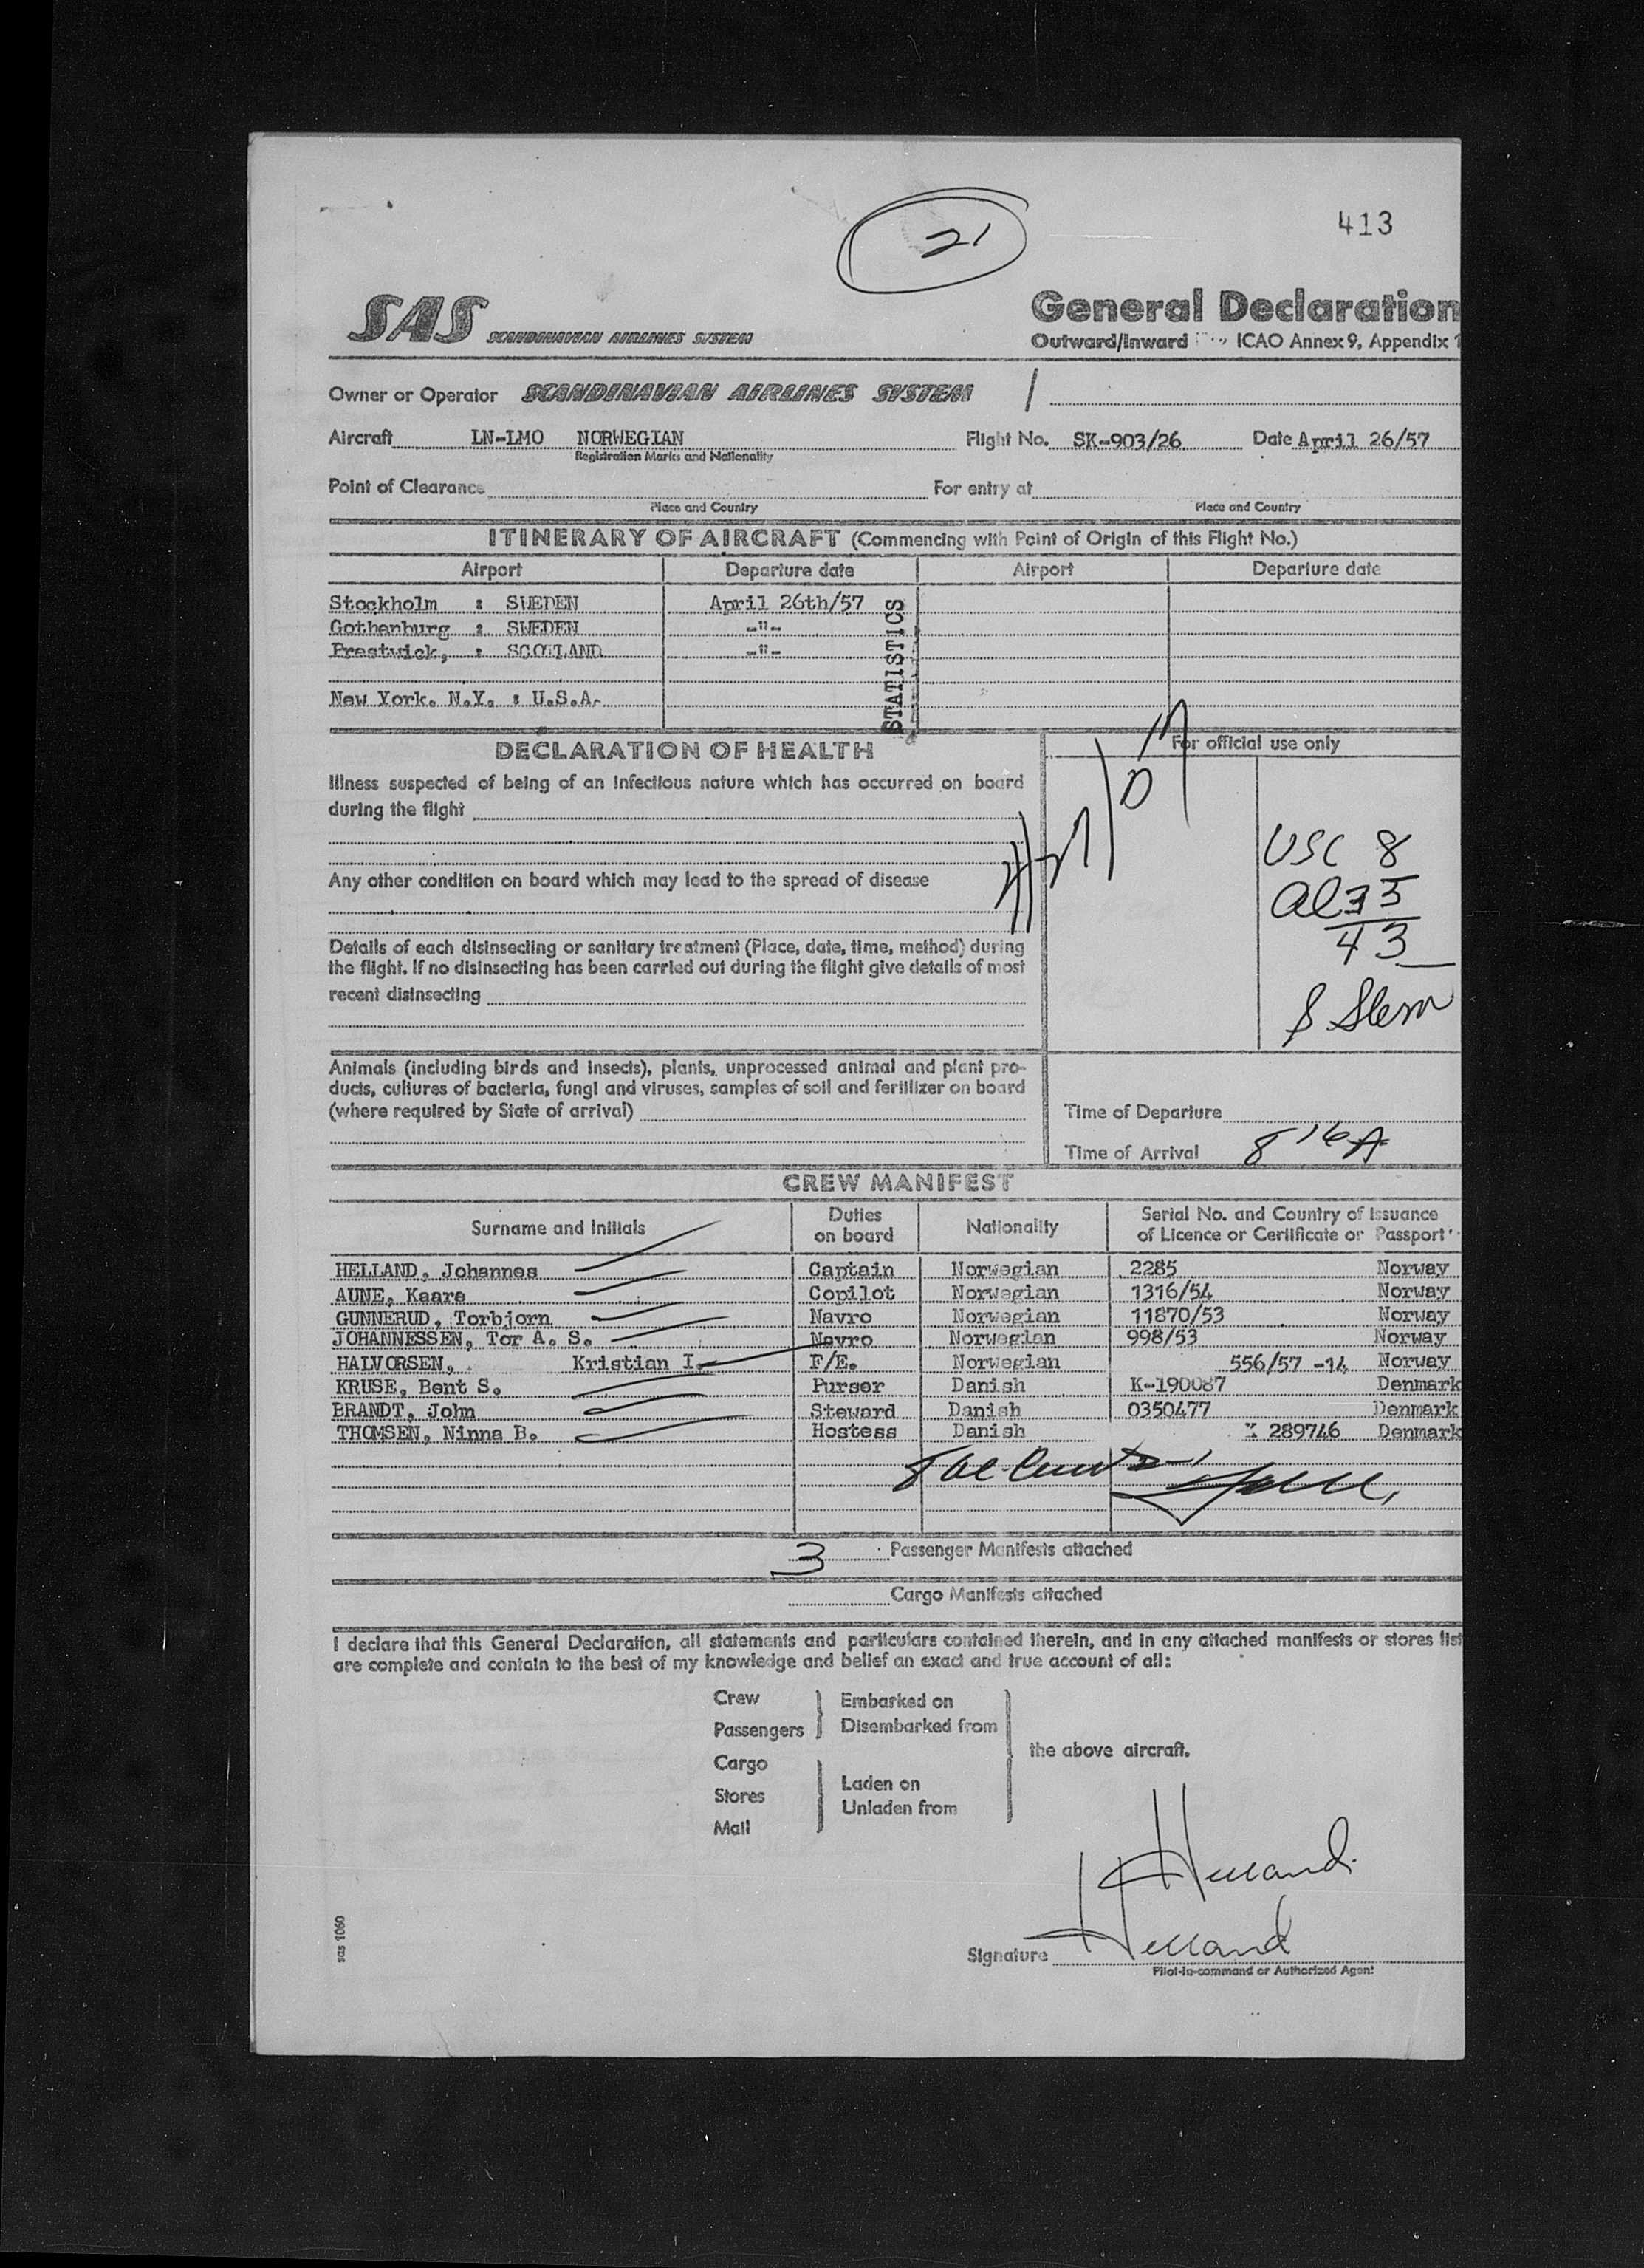 21
413
SAS SCANDINAVIAN AIRLINES SYSTEM
General Declaration
Outward/Inward ICAO Annex 9, Appendix 1
Owner or Operator SCANDINAVIAN AIRLINES SYSTEM
Aircraft LN-LMO NORWEGIAN Flight No. SK-903/26 Date April 26/57
Registration Marks and Nationality
Point of Clearance For entry at
Place and Country Place and Country
ITINERARY OF AIRCRAFT (Commencing with Point of Origin of this Flight No.)
Airport Departure date Airport Departure date
Stockholm : SWEDEN April 26th/57
Gothenburg : SWEDEN -"-
Prestwick, : SCOTLAND -"-
New York. N.Y. : U.S.A.
STATISTICS
DECLARATION OF HEALTH
For official use only
Illness suspected of being of an infectious nature which has occurred on board
during the flight
Any other condition on board which may lead to the spread of disease
Details of each disinsecting or sanitary treatment (Place, date, time, method) during
the flight. If no disinsecting has been carried out during the flight give details of most
recent disinsecting
USC 8
al 35
43
S Stern
Animals (including birds and insects), plants, unprocessed animal and plant pro-
ducts, cultures of bacteria, fungi and viruses, samples of soil and fertilizer on board
(where required by State of arrival)
Time of Departure
Time of Arrival 8 16 A
CREW MANIFEST
Surname and Initials Duties on board Nationality Serial No. and Country of Issuance of Licence or Certificate or Passport
HELLAND, Johannes Captain Norwegian 2285 Norway
AUNE, Kaare Copilot Norwegian 1316/54 Norway
GUNNERUD, Torbjorn Navro Norwegian 11870/53 Norway
JOHANNESSEN, Tor A. S. Navro Norwegian 998/53 Norway
HALVORSEN, Kristian I. F/E. Norwegian 556/57 -14 Norway
KRUSE, Bent S. Purser Danish K-190087 Denmark
BRANDT, John Steward Danish 0350477 Denmark
THOMSEN, Ninna B. Hostess Danish K 289746 Denmark
3 Passenger Manifests attached
Cargo Manifests attached
I declare that this General Declaration, all statements and particulars contained therein, and in any attached manifests or stores list
are complete and contain to the best of my knowledge and belief an exact and true account of all:
Crew
Passengers
Embarked on
Disembarked from
Cargo
Stores
Mail
Laden on
Unladen from
the above aircraft.
Helland
Helland
Signature
Pilot-in-command or Authorized Agent
sas 1060